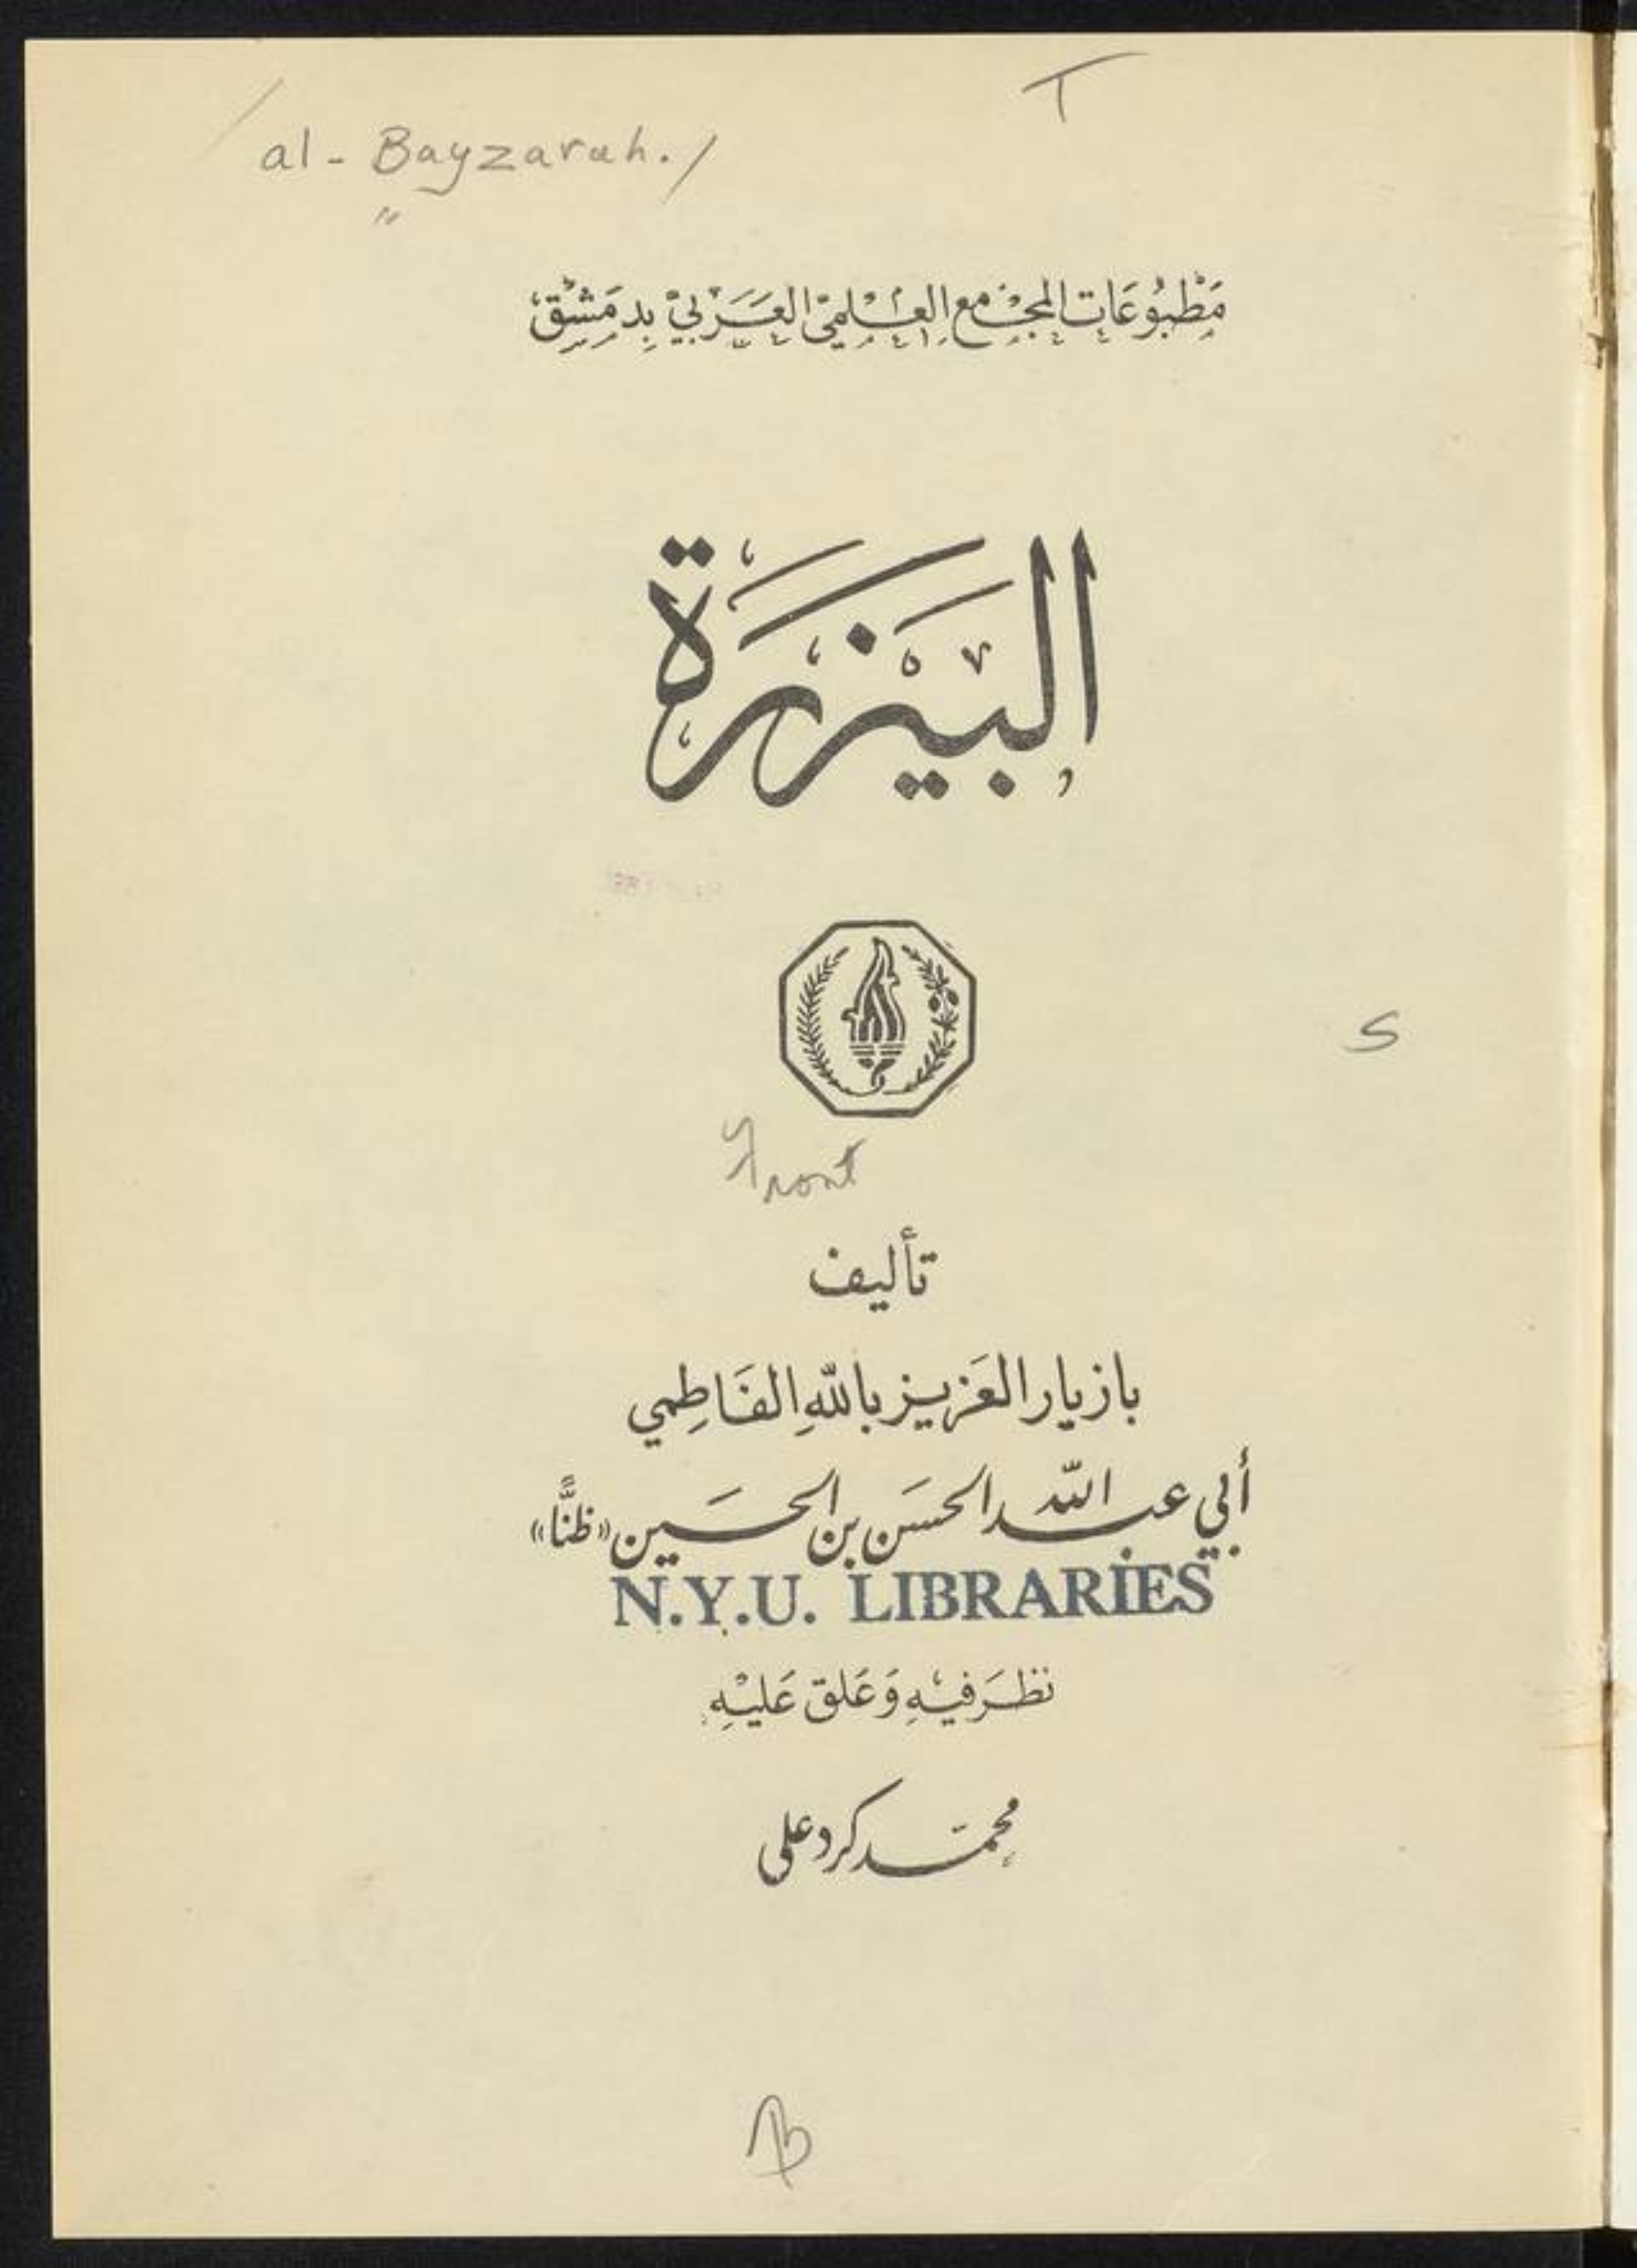 T
al-Bayzarah./
مَطْبُوعَات المجْمع العِلميّ العَرَبيّ بِدِمَشْق
البَيْزَرَة
S
Front
تأليف
بازيار العَزيز باللهِ الفَاطِمي
أبي عبد اللّٰه الحسَن بن الحسَين «ظنًّا»
N.Y.U. LIBRARIES
نظَر فيْهِ وَعَلق عَليْهِ
محمّد كرد علي